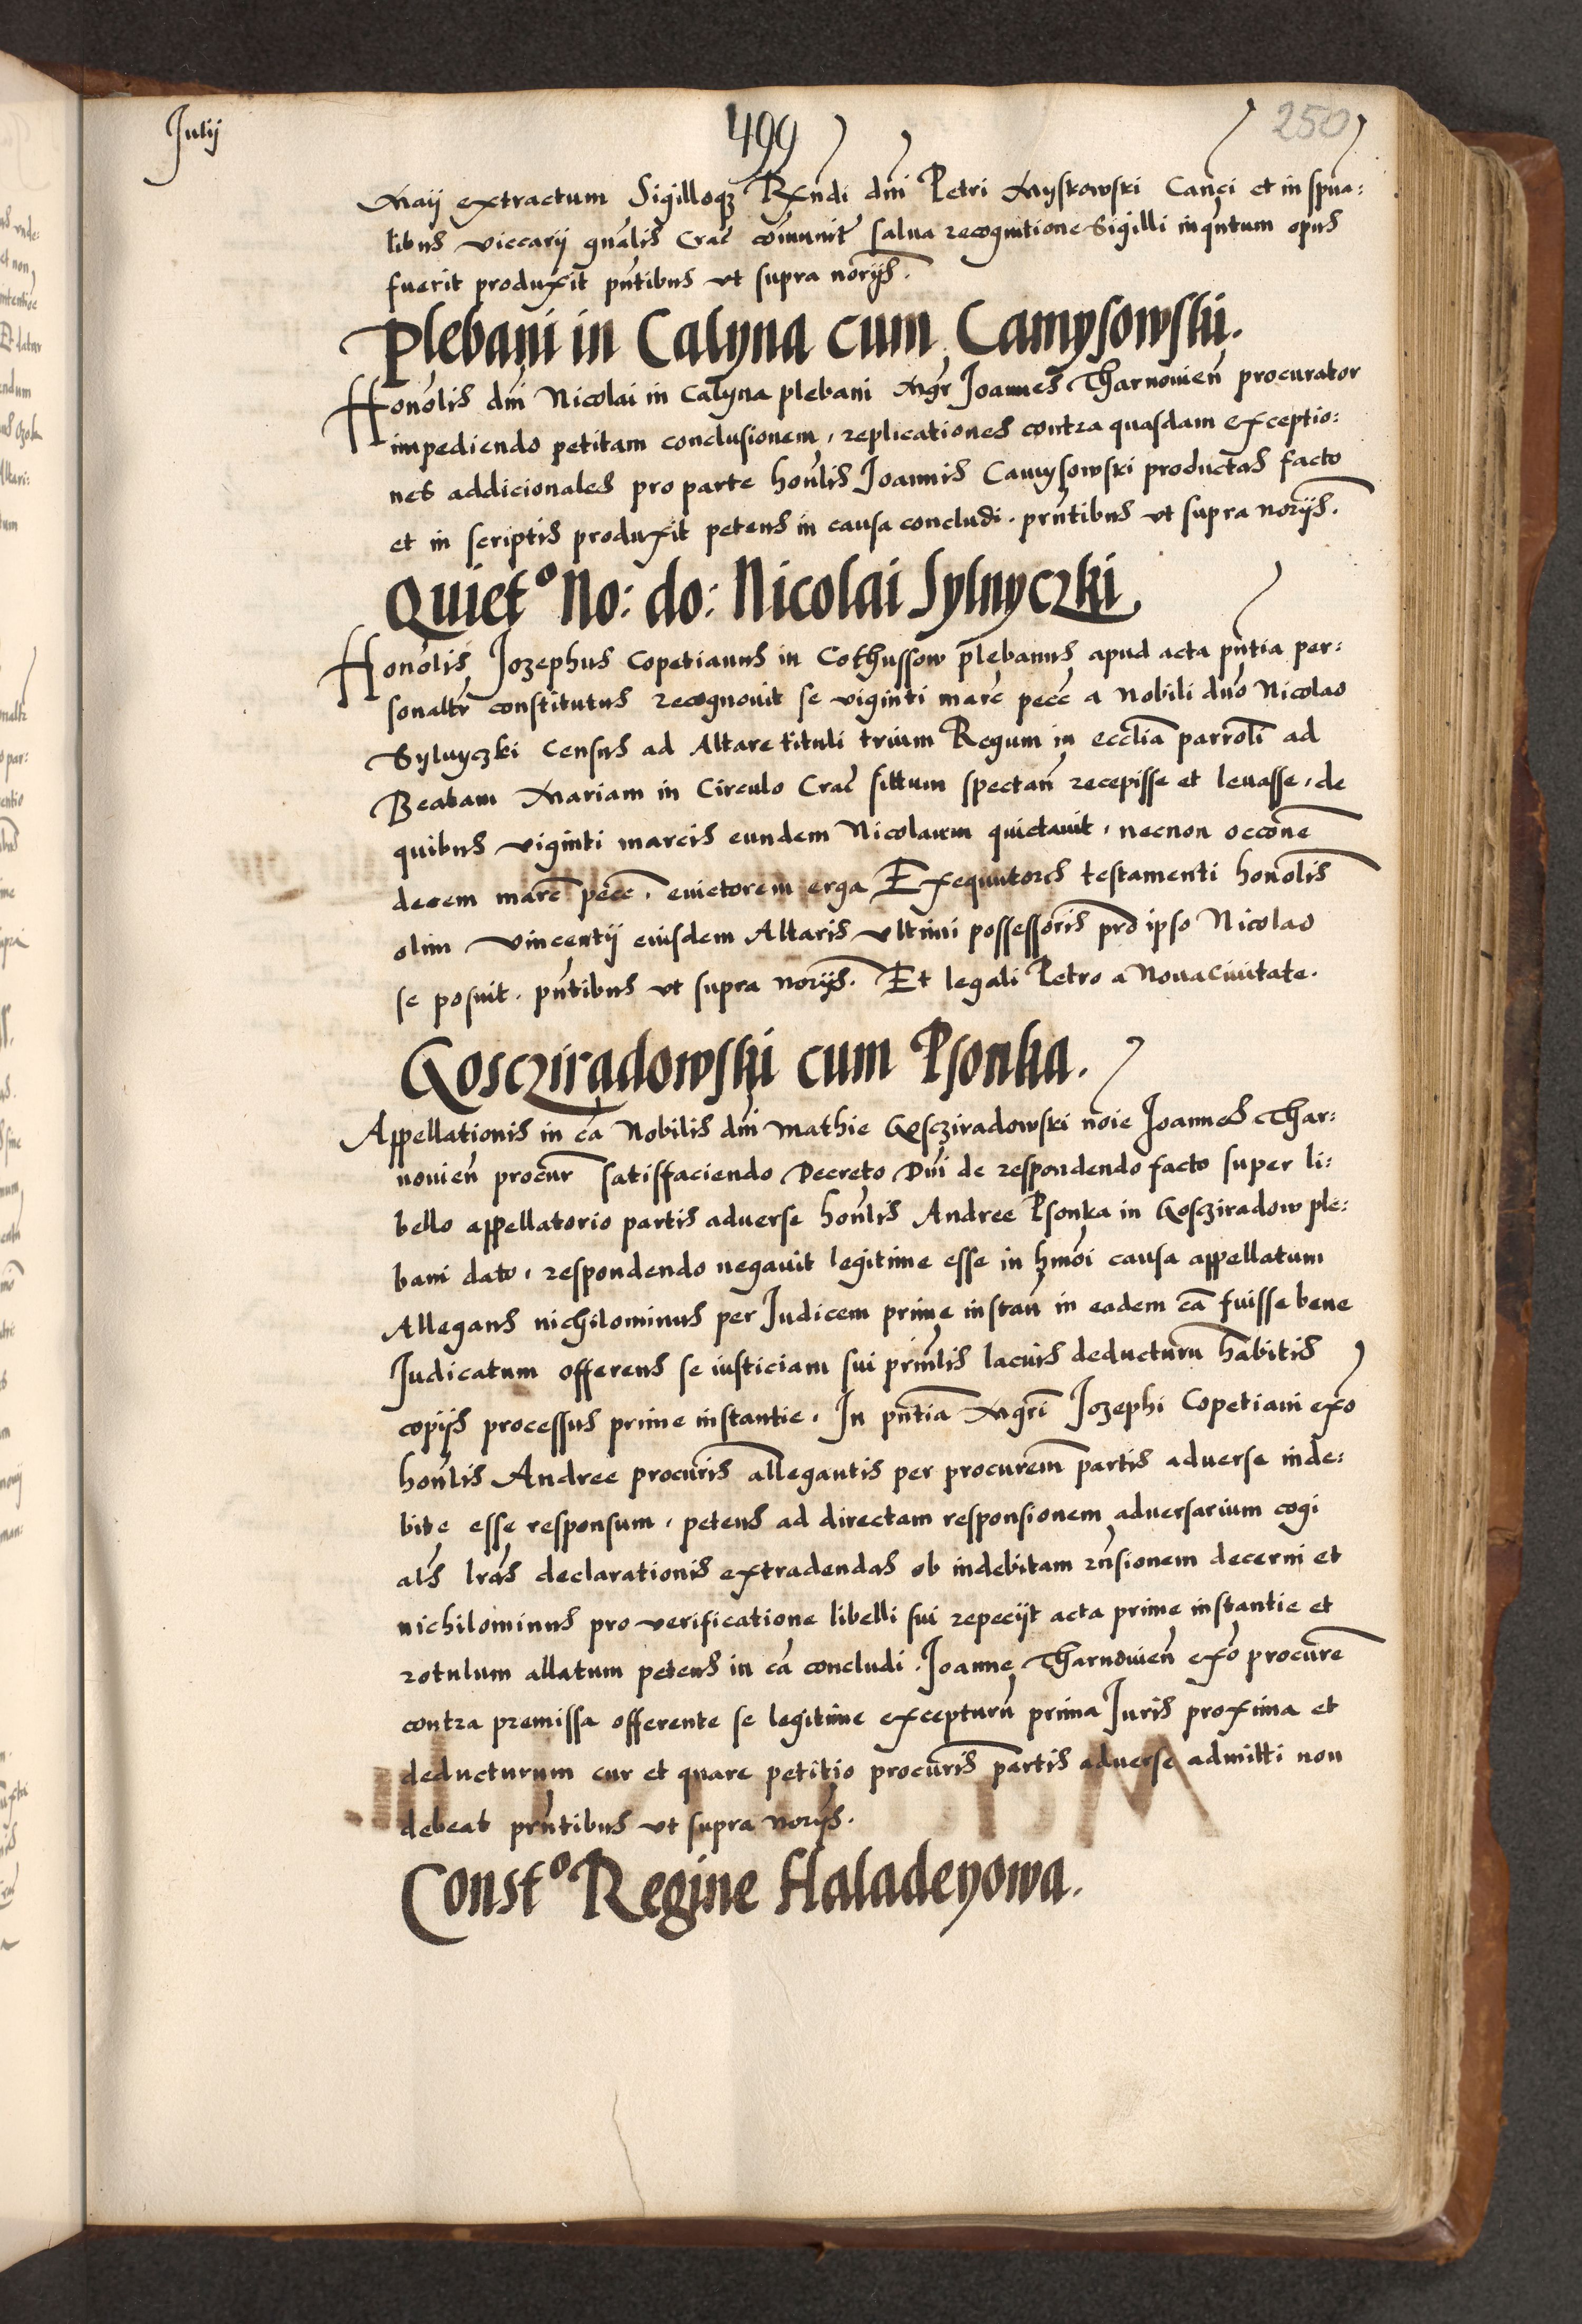 Julij
499
250
Maij extractum Sigilloqz Rxndi dni Petri Myskowski Canci et in spua:
libus viccarij gnalis Crac comunit salua recognitione Sigilli inqntum opus
fuerit produxit pntibus vt supra norijs.
Plebani in Calyna cum Camysowski.
Honolis dni Nicolai in Calyna plebani Mgr Joannes Tharnouien procurator
impediendo petitam conclusionem, replicationes contra quasdam exceptio:
nes addicionales pro parte honlis Joannis Camysowski productas facto
et in scriptis produxit petens in causa concludi. prntibus vt supra norijs.
Quieto No: do: Nicolai Sylnyczki
Honolis Jozephus Copetianus in Cothussow plebanus apud acta pntia per:
sonaltr constitutus recognouit se viginti marc pecc a Nobili dno Nicolao
Sylnyczki Census ad Altare tituli trium Regum in ecclia parroli ad
Beatam Mariam in Circulo Crac sittum spectan recepisse et leuasse, de
quibus viginti marcis eundem Nicolaum quictauit, necnon occone
decem marc pecc, euictorem erga Exequutores testamenti honolis
olim Vincentij eiusdem Altaris vltimi possessoris pro ipso Nicolao
se posuit. pntibus vt supra norijs. Et legali Petro a Noua Ciuitate.
Goscziradowski cum Psonka.
Appellationis in ca Nobilis dni Mathie Goscziradowski noie Joannes Thar:
nouien procur satisfaciendo Decreto Dni de respondendo facto super li:
bello appellatorio partis aduerse honlis Andree Psonka in Gosciradow ple:
bani dato, respondendo negauit legitime esse in hmoi causa appellatum
Allegans nichilominus per Judicem prime instan in eadem ca fuisse bene
Judicatum offerens se iusticiam sui prinlis lacius deducturu habitis
copijs processus prime instantie. In pntia Mgri Jozephi Copetiani exo
honlis Andree procuris allegantis per procurem partis aduerse inde:
bite esse responsum, petens ad directam responsionem aduersarium cogi
als lras declarationis extradendas ob indebitam rnsionem decerni et
nichilominus pro verificatione libelli sui repecijt acta prime instantie et
rotulum allatum petens in ca concludi. Joanne Tharnouien exo procure
contra premissa offerente se legitime excepturu prima Juris proxima et
deducturum cur et quare petitio procuris partis aduerse admitti non
debeat prntibus vt supra norijs.
Consto Regine Haladeyowa.